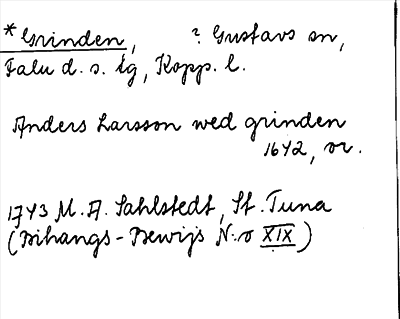 *Grinden, ? Gustavs sn,
Falu d. s. lg, Kopp. l.
Anders Larsson wed grinden
1642, or.
1743 M. A. Sahlstedt, St. Tuna
(Bihangs-Bewijs N:o XIX)